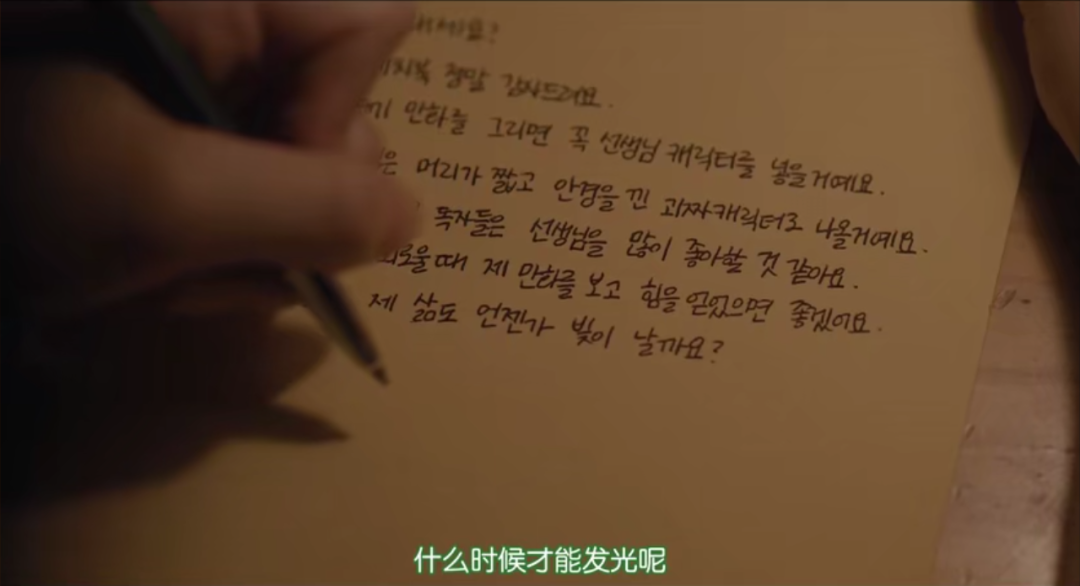 정말 감사드려요.
만화를 그리면 꼭 선생님 캐릭터를 넣을거예요.
머리가 짧고 안경을 낀 괴짜캐릭터로 나올거예요.
독자들은 선생님을 많이 좋아할 것 같아요.
때 제 만화를 보고 힘을 얻었으면 좋겠어요.
제 삶도 언젠가 빛이 날까요?
什么时候才能发光呢